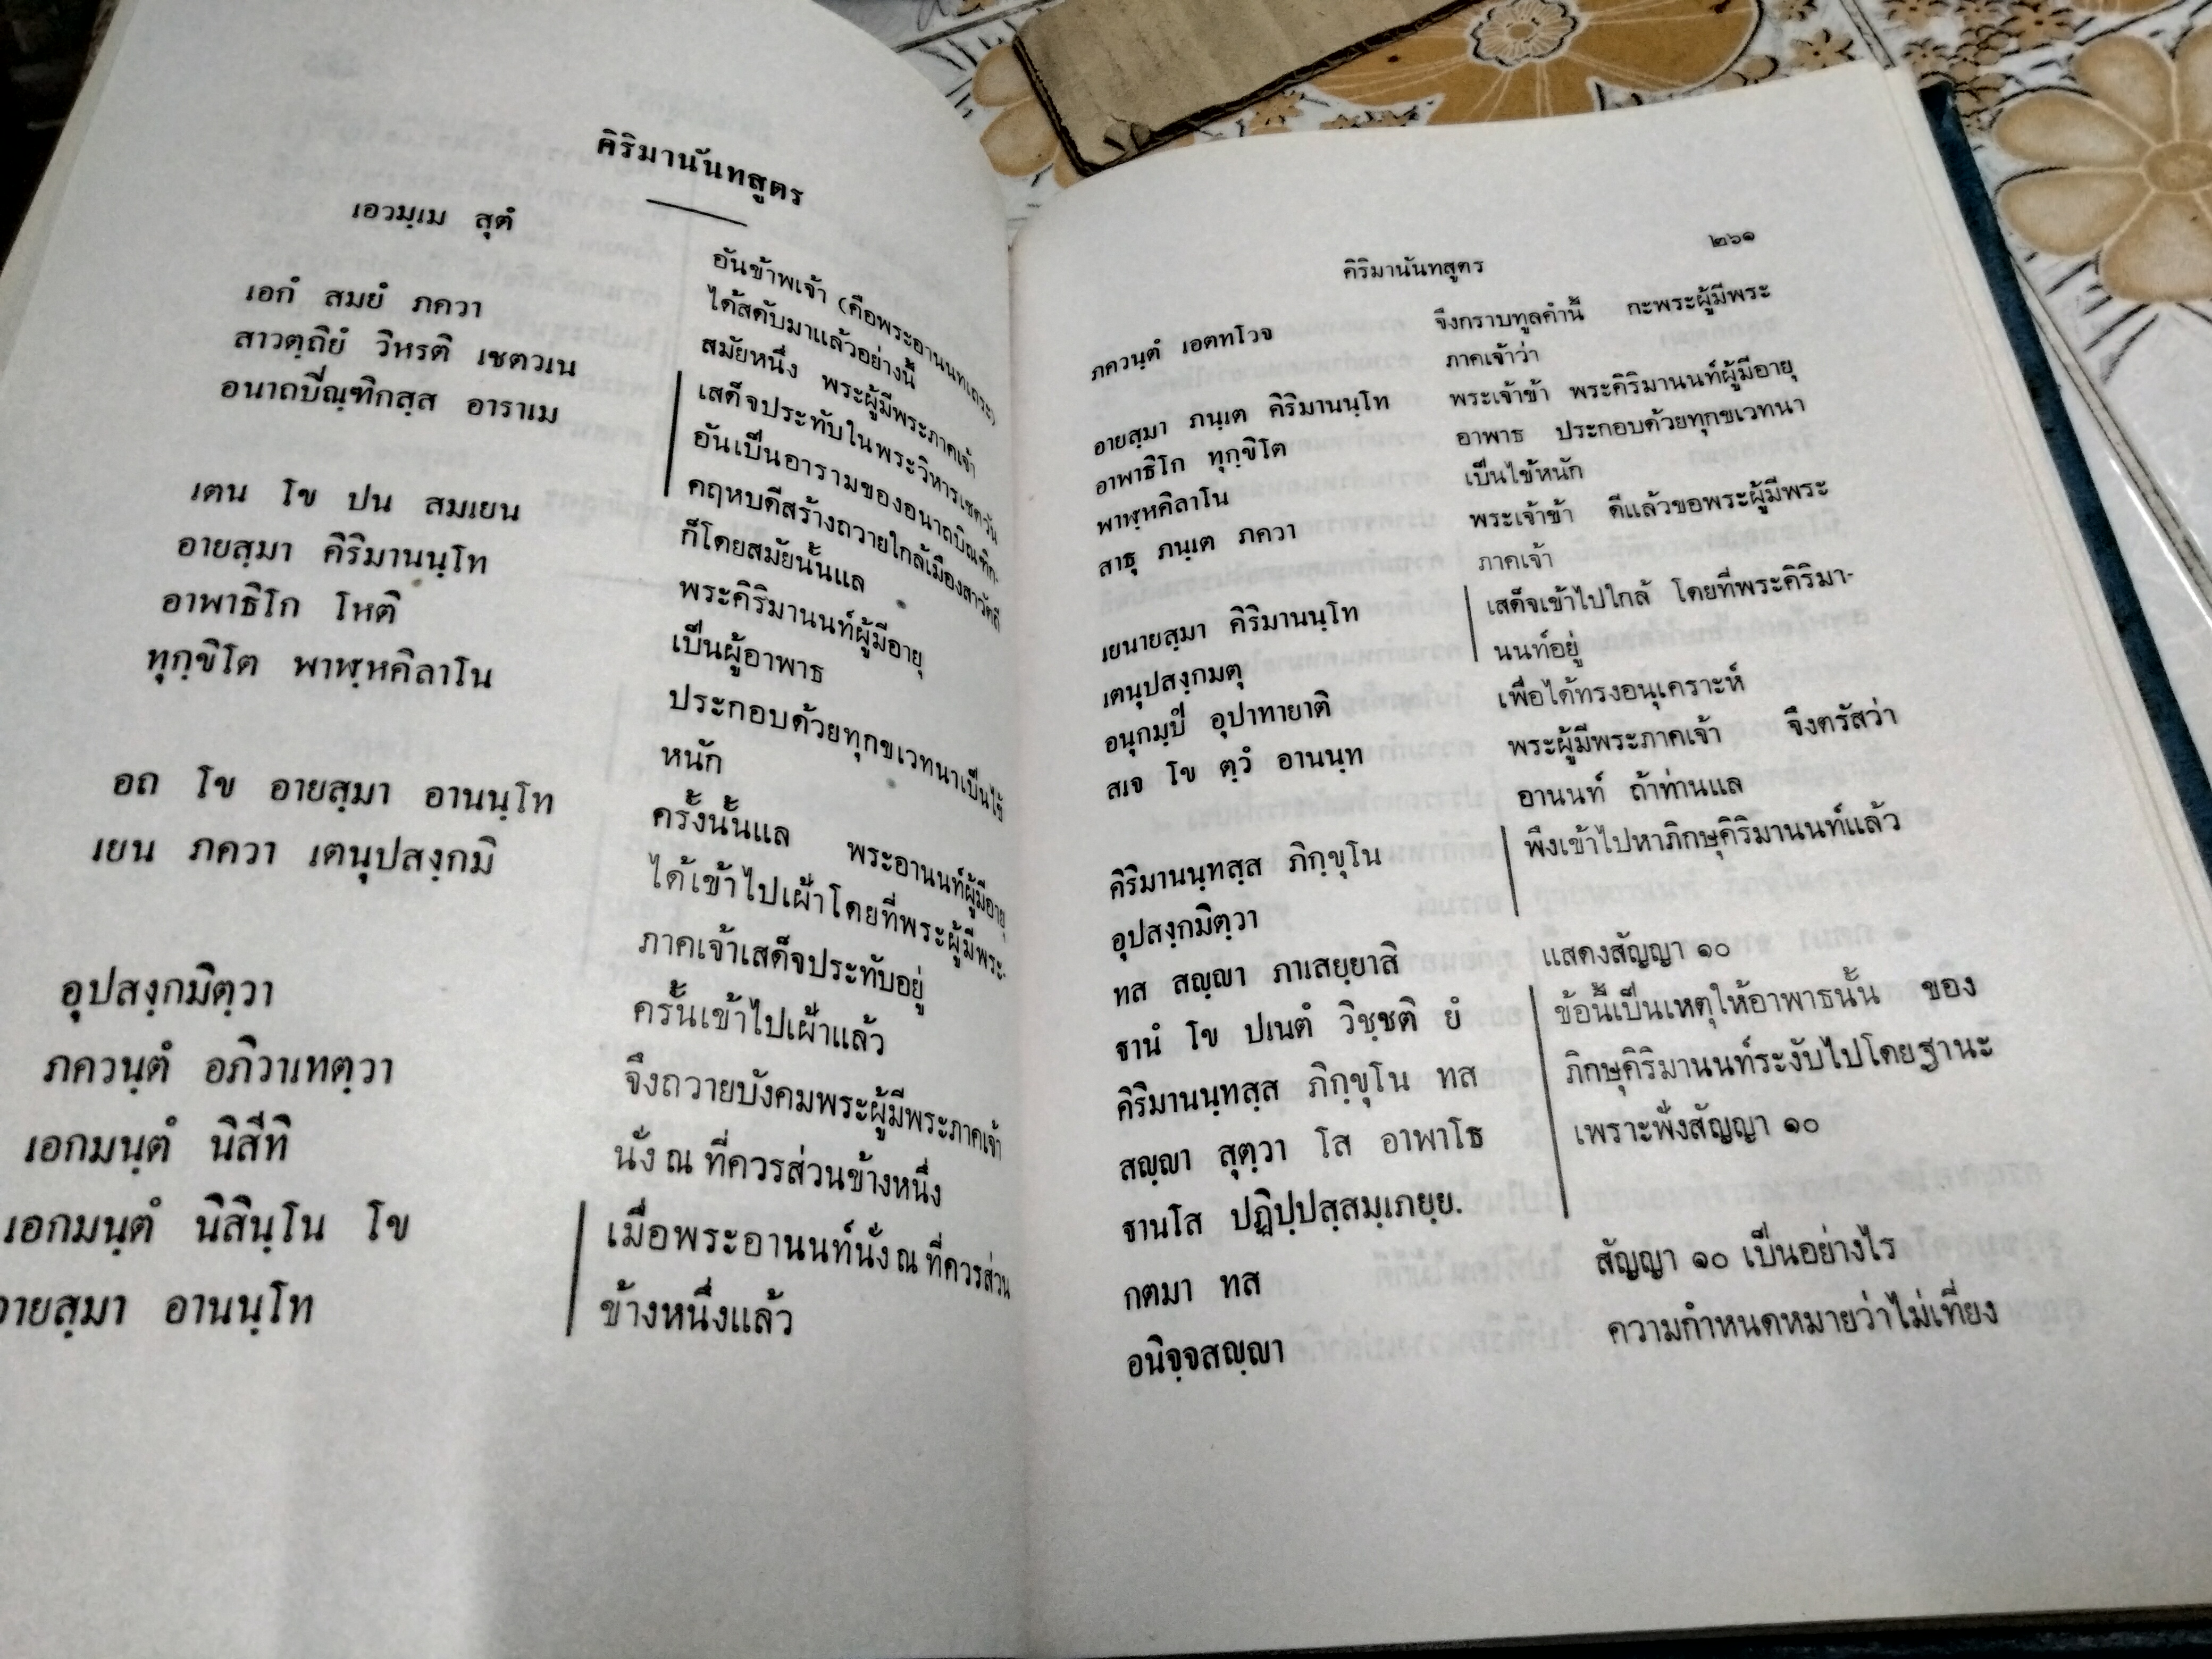 คิริมานันทสูตร
เอวมฺเม สุตํ
อันข้าพเจ้า (คือพระอานนทเถระ)
ได้สดับมาแล้วอย่างนี้
เอกํ สมยํ ภควา
สมัยหนึ่ง พระผู้มีพระภาคเจ้า
สาวตฺถิยํ วิหรติ เชตวเน
เสด็จประทับในพระวิหารเชตวัน
อนาถปิณฺฑิกสฺส อาราเม
อันเป็นอารามของอนาถบิณฑิก-
คฤหบดีสร้างถวายใกล้เมืองสาวัตถี
เตน โข ปน สมเยน
ก็โดยสมัยนั้นแล
อายสฺมา คิริมานนฺโท
พระคิริมานนท์ผู้มีอายุ
อาพาธิโก โหติ
เป็นผู้อาพาธ
ทุกฺขิโต พาฬฺหคิลาโน
ประกอบด้วยทุกขเวทนาเป็นไข้
หนัก
อถ โข อายสฺมา อานนฺโท
ครั้งนั้นแล พระอานนท์ผู้มีอายุ
เยน ภควา เตนุปสงฺกมิ
ได้เข้าไปเฝ้าโดยที่พระผู้มีพระ-
ภาคเจ้าเสด็จประทับอยู่
อุปสงฺกมิตฺวา
ครั้นเข้าไปเฝ้าแล้ว
ภควนฺตํ อภิวาเทตฺวา
จึงถวายบังคมพระผู้มีพระภาคเจ้า
เอกมนฺตํ นิสีทิ
นั่ง ณ ที่ควรส่วนข้างหนึ่ง
เอกมนฺตํ นิสินฺโน โข
เมื่อพระอานนท์นั่ง ณ ที่ควรส่วน
อายสฺมา อานนฺโท
ข้างหนึ่งแล้ว
๒๖๑
คิริมานันทสูตร
ภควนฺตํ เอตทโวจ
จึงกราบทูลคำนี้ กะพระผู้มีพระ
ภาคเจ้าว่า
อายสฺมา ภนฺเต คิริมานนฺโท
พระเจ้าข้า พระคิริมานนท์ผู้มีอายุ
อาพาธิโก ทุกฺขิโต
อาพาธ ประกอบด้วยทุกขเวทนา
พาฬฺหคิลาโน
เป็นไข้หนัก
สาธุ ภนฺเต ภควา
พระเจ้าข้า ดีแล้วขอพระผู้มีพระ
ภาคเจ้า
เยนายสฺมา คิริมานนฺโท
เสด็จเข้าไปใกล้ โดยที่พระคิริมา-
เตนุปสงฺกมตุ
นนท์อยู่
อนุกมฺปํ อุปาทายาติ
เพื่อได้ทรงอนุเคราะห์
สเจ โข ตฺวํ อานนฺท
พระผู้มีพระภาคเจ้า จึงตรัสว่า
อานนท์ ถ้าท่านแล
คิริมานนฺทสฺส ภิกฺขุโน
พึงเข้าไปหาภิกษุคิริมานนท์แล้ว
อุปสงฺกมิตฺวา
ทส สญฺญา ภาเสยฺยาสิ
แสดงสัญญา ๑๐
ฐานํ โข ปเนตํ วิชฺชติ ยํ
ข้อนี้เป็นเหตุให้อาพาธนั้น ของ
คิริมานนฺทสฺส ภิกฺขุโน ทส
ภิกษุคิริมานนท์ระงับไปโดยฐานะ
สญฺญา สุตฺวา โส อาพาโธ
เพราะฟังสัญญา ๑๐
ฐานโส ปฏิปฺปสฺสมฺเภยฺย.
กตมา ทส
สัญญา ๑๐ เป็นอย่างไร
อนิจฺจสญฺญา
ความกำหนดหมายว่าไม่เที่ยง